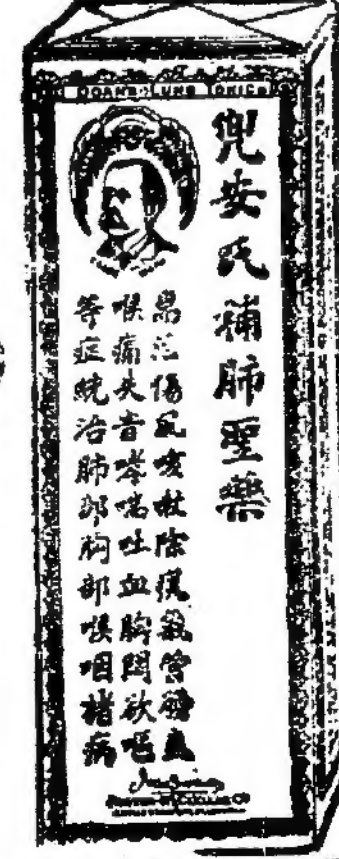 DOANS LUNG TONIC
兜安氏補肺聖藥
傷風咳杖除痰氣管發炎
喉痛失音哮喘吐血胸悶欲嘔
等症統治肺部胸部喉咽諸病